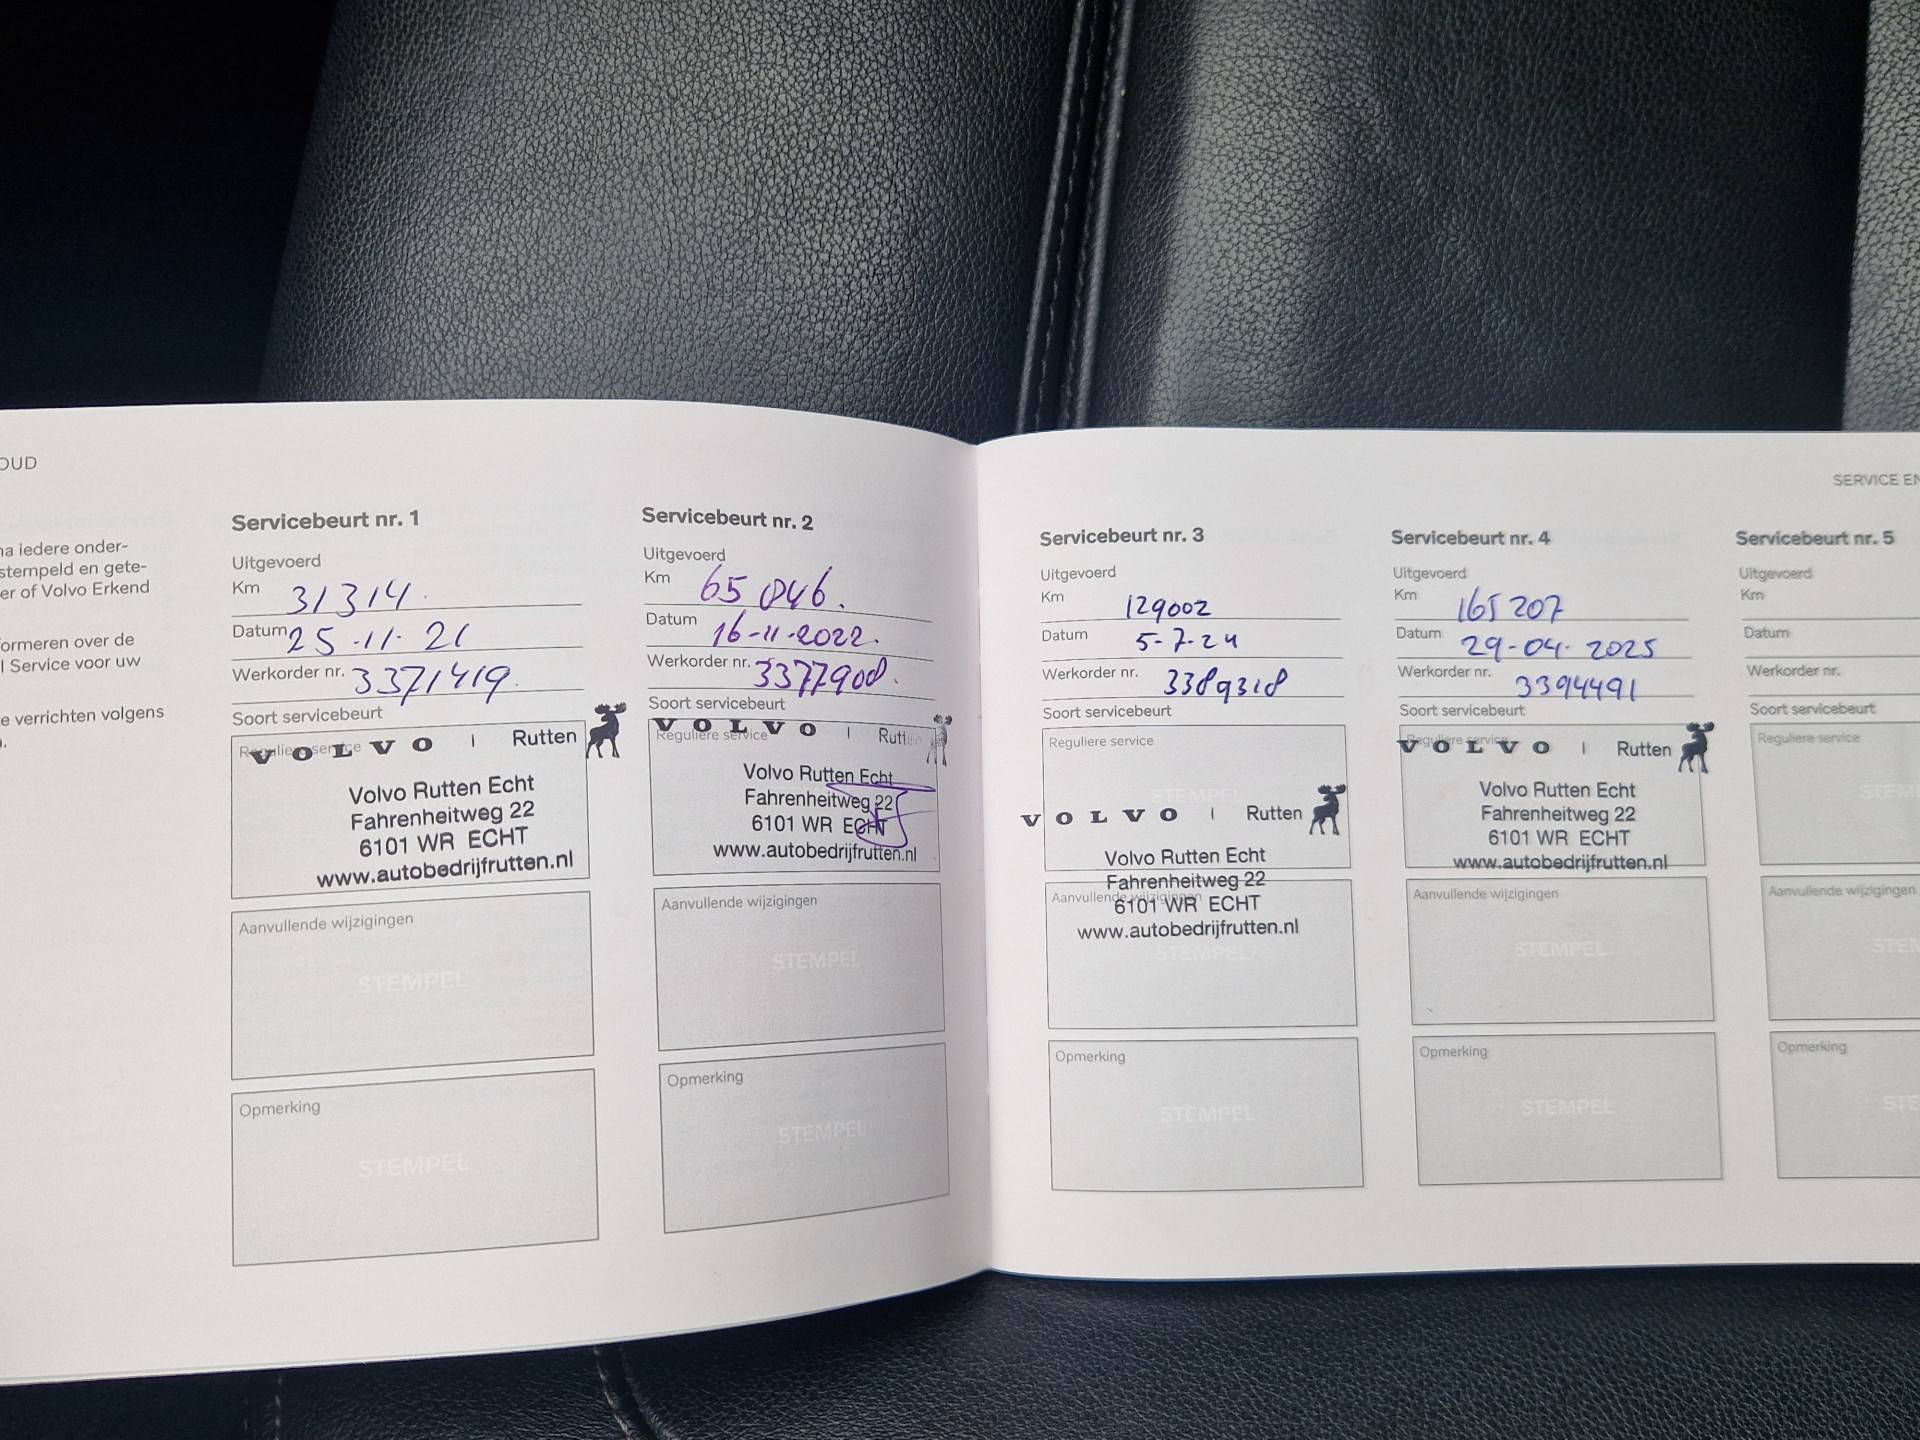 OUD
na iedere onder-
stempeld en gete-
er of Volvo Erkend
ormeren over de
l Service voor uw
e verrichten volgens
Servicebeurt nr. 1
Uitgevoerd
Km 31314.
Datum 25-11-21
Werkorder nr. 3371419.
Soort servicebeurt
Reguliere service
VOLVO | Rutten
Volvo Rutten Echt
Fahrenheitweg 22
6101 WR ECHT
www.autobedrijfrutten.nl
Aanvullende wijzigingen
STEMPEL
Opmerking
STEMPEL
Servicebeurt nr. 2
Uitgevoerd
Km 65046.
Datum 16-11-2022.
Werkorder nr. 3377908.
Soort servicebeurt
Reguliere service
VOLVO | Rutten
Volvo Rutten Echt
Fahrenheitweg 22
6101 WR ECHT
www.autobedrijfrutten.nl
Aanvullende wijzigingen
STEMPEL
Opmerking
STEMPEL
SERVICE EN
Servicebeurt nr. 3
Uitgevoerd
Km 129002
Datum 5-7-24
Werkorder nr. 3389318
Soort servicebeurt
Reguliere service
STEMPEL
VOLVO | Rutten
Volvo Rutten Echt
Fahrenheitweg 22
Aanvullende wijzigingen
6101 WR ECHT
www.autobedrijfrutten.nl
STEMPEL
Opmerking
STEMPEL
Servicebeurt nr. 4
Uitgevoerd
Km 165207
Datum 29-04-2025
Werkorder nr. 3394491
Soort servicebeurt
Reguliere service
VOLVO | Rutten
Volvo Rutten Echt
Fahrenheitweg 22
6101 WR ECHT
www.autobedrijfrutten.nl
Aanvullende wijzigingen
STEMPEL
Opmerking
STEMPEL
Servicebeurt nr. 5
Uitgevoerd
Km
Datum
Werkorder nr.
Soort servicebeurt
Reguliere service
STEM
Aanvullende wijzigingen
STEM
Opmerking
STE